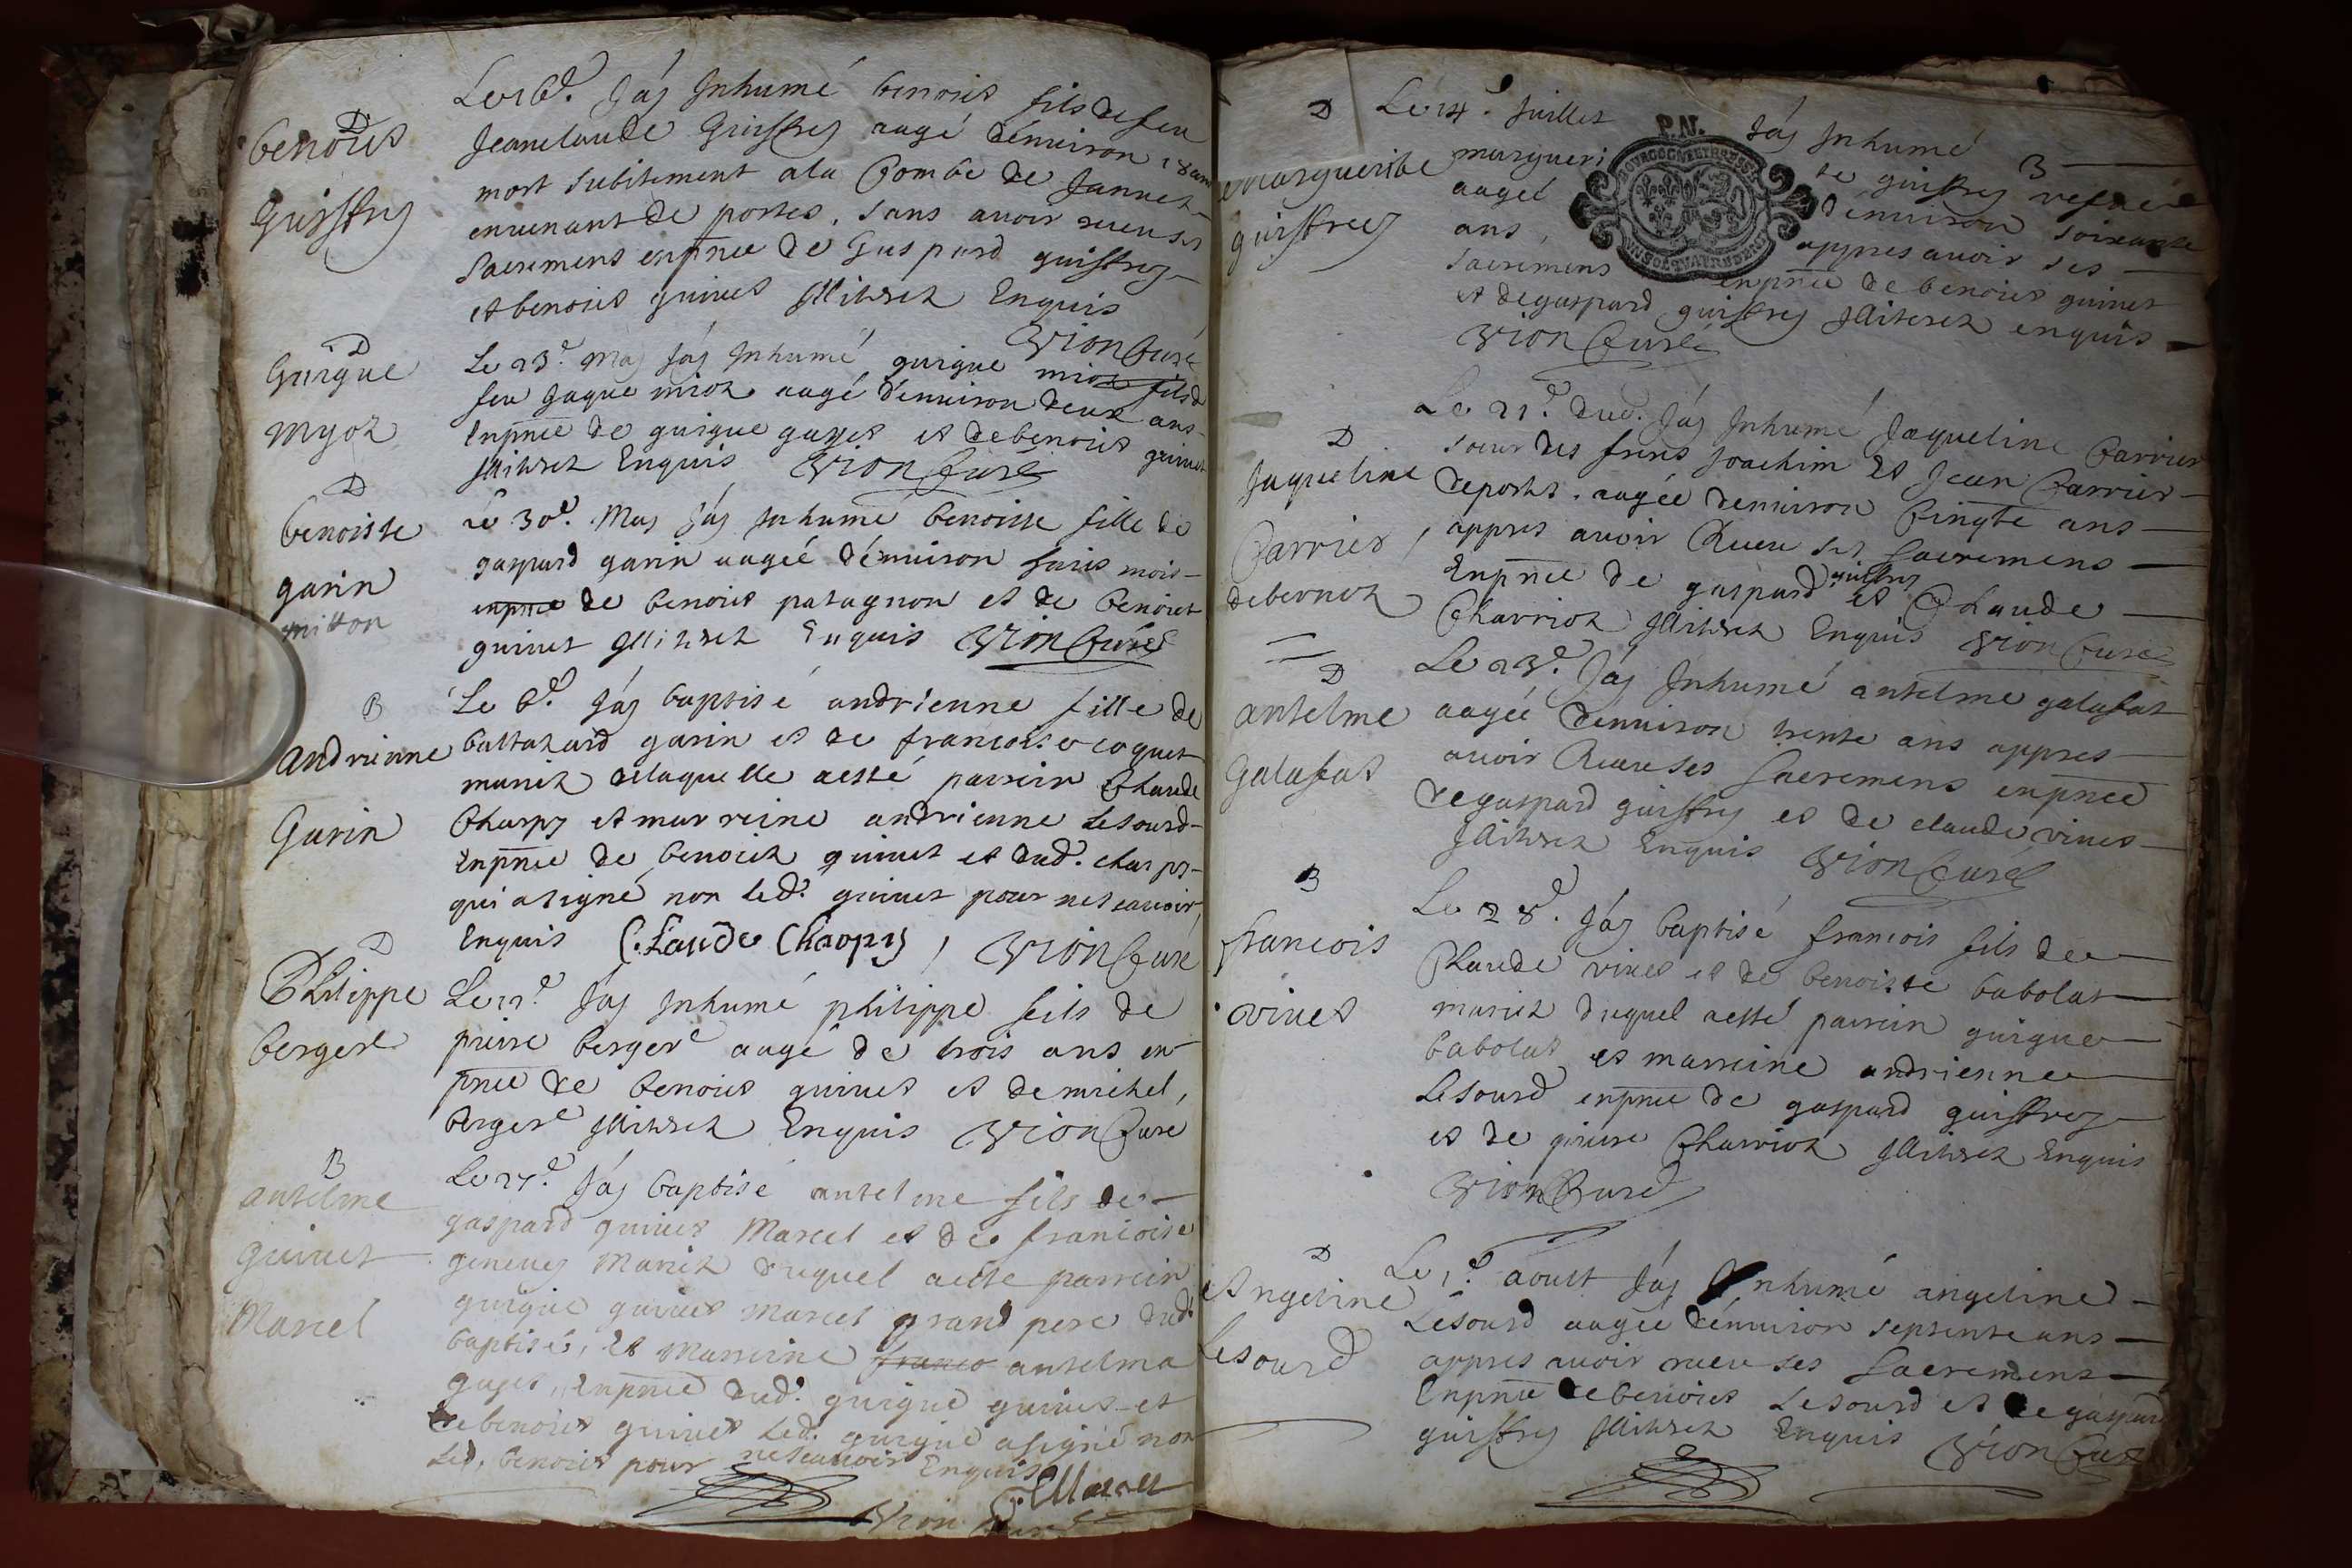 D
benoict
Guiffrey
Le 16e. Jáy Inhumé benoict fils de feu
Jeanclaude Guiffrey aagé dénuiron 18 ans
mort subitement a la Combe de Jannet
en venant de portes, sans avoir receu ses
Sacremens enpñce de Gaspard guiffrey
et benoict guinet Illiterez Enquis
Vion Curé
D
Guigue
myoz
Le 23e. May Jáy Inhumé guigue mioz fils de
feu Jaque mioz aagé dénuiron deux ans
Enpñce de guigue gayet et de benoict guinet
Illiterez Enquis Vion Curé
D
benoiste
garin
mitton
Le 30e. May Jáy Inhumé benoiste fille de
gaspard garin aageé dénuiron mois
enpñce de benoict patagnon et de benoict
guinet Illiterez Enquis Vion Curé
B
andrienne
Garin
Le 6e. Jáy baptisé andrienne fille de
baltazard garin et de francoise coquet
mariez de laquelle aesté parrein Claude
Charpy et marreine andrienne Lesourd
Enpñce de benoict guinet et dud. charpy
qui a signé non led. guinet pour ne scauoir,
Enquis Claude Charpy, Vion Curé
D
Philippe
bergere
Le 11e. Jáy Inhumé philippe fils de
pierre bergere aagé de trois ans en
pñce de benoict guinet et de michel,
bergere Illiterez Enquis Vion Curé
B
antelme
guinet
Marcel
Le 27e. Jáy baptisé antelme fils de
gaspard guinet Marcel et de francoise
geneuey Mariez duquel aesté parrein
guigue guinet Marcel grand pere dud.
baptisé, et Marreine franco antelma
gayet, Enpñce dud. guigue guinet et
de benoict guinet Led. guigue a signé non
Led. benoict pour ne scauoir Enquis
G. Marcel
Vion Curé
D
marguerite
guiffrey
P.N.
Le 14e. Juillet Jáy Inhumé
marguerite guiffrey
aageé dénuiron soixante
ans, appres avoir ses
Sacremens enpñce de benoict guinet
et de gaspard guiffrey Illiterez enquis
Vion Curé
D
Jaqueline
Carrier
debernoz
Le 21e. dud. Jáy Inhumé Jaqueline Carrier
soeur des freres Joachim et Jean Carrier
de portes. aagée denuiron Cinqte ans
appres avoir Receu ses Sacremens
Enpñce de gaspard guiffrey et Claude
Charrioz Illiterez Enquis Vion Curé
D
antelme
Galafat
Le 23e. Jáy Inhumé antelme galafat
aagée denuiron trente ans appres
avoir Receu ses Sacremens enpñce
de gaspard guiffrey et de claude vinet
Illiterez Enquis Vion Curé
B
francois
vinet
Le 28e. Jáy baptisé francois fils de
Claude vinet et de benoiste babolat
mariez duquel aesté parrein guigue
babolat et marreine andrienne
Lesourd enpñce de gaspard guiffrey
et de pierre Charrioz Illiterez Enquis
Vion Curé
D
Angeline
Lesourd
Le 1e. aoust Jáy Inhumé angeline
Lesourd aagée dénuiron septente ans
appres avoir receu ses Sacremens
Enpñce de benoict Lesourd et de gaspard
guiffrey Illiterez Enquis Vion Curé